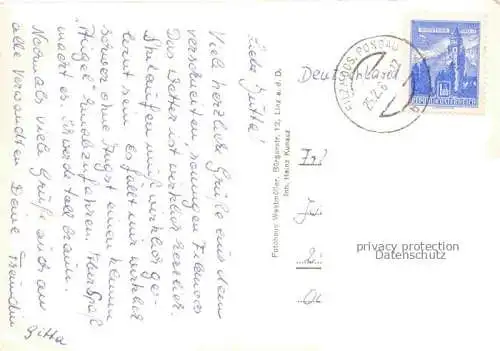 Liebe Jutta!
Viel herzliche Grüße aus dem
verschneiten, sonnigen Filzmoos
Das Wetter ist wirklich herrlich.
Skilaufen muß wirklich ge-
lernt sein. es fällt mir wirklich
schwer ohne Angst einen kleinen
"Hügel" runterzufahren. Aber Spaß
macht es. Ich werde toll braun.
Nochmals viele Grüße auch an
alle Verwandten Deine Freundin
Gitta
Fotohaus Westmüller, Bürgerstr. 12, Linz a. d. D.
Inh. Heinz Kunasz
FILZMOOS, PONGAU
REPUBLIK ÖSTERREICH
Deutschland
privacy protection
Datenschutz